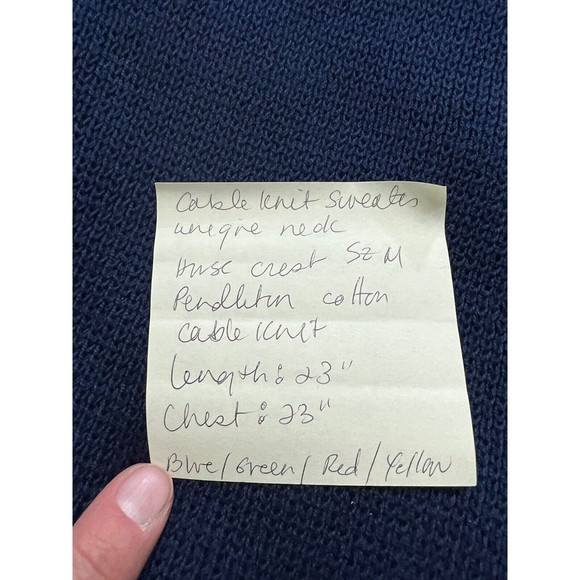 Cable Knit Sweater
unique neck
Horse crest Sz M
Pendleton cotton
Cable Knit
Length: 23"
Chest: 23"
Blue/Green/Red/Yellow